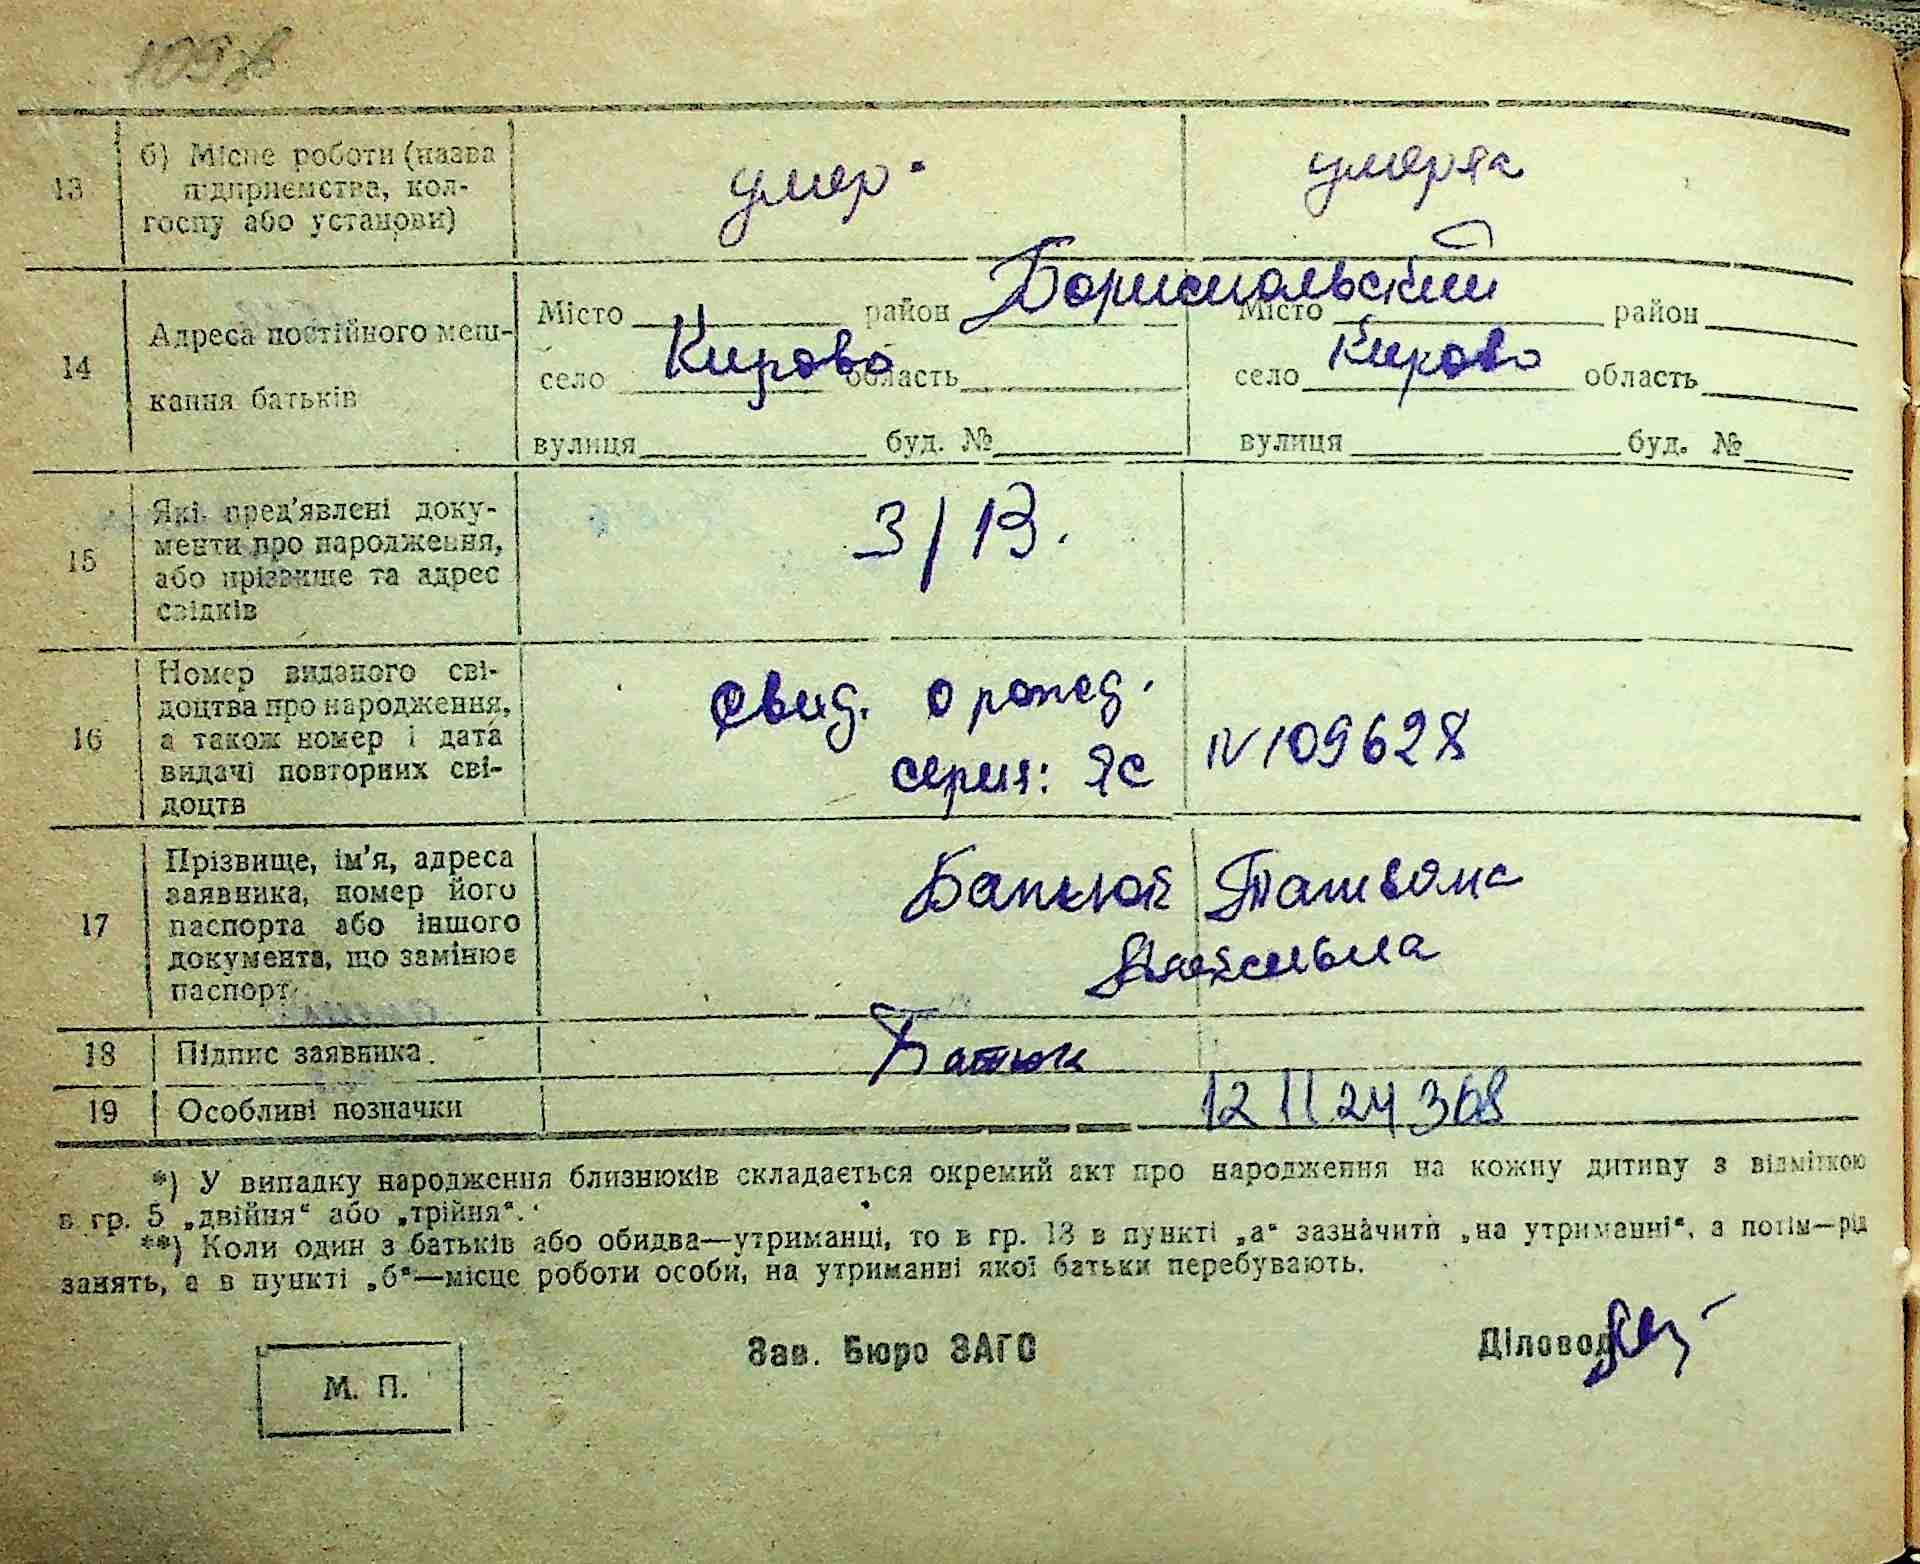 13 б) Місце роботи (назва підприємства, колгоспу або установи) умер. умерла
14 Адреса постійного мешкання батьків
Місто район Бориспольский Місто район
село Кирово область село Кирово область
вулиця буд. № вулиця буд. №
15 Які пред'явлені документи про народження, або прізвище та адрес свідків 3/13.
16 Номер виданого свідоцтва про народження, а також номер і дата видачі повторних свідоцтв
свид. о рожд.
серия: ЯС № 109628
17 Прізвище, ім'я, адреса заявника, номер його паспорта або іншого документа, що замінює паспорт
Татьяна
18 Підпис заявника. Батюк
19 Особливі позначки 12 11 24 368
*) У випадку народження близнюків складається окремий акт про народження на кожну дитину з відміткою
в гр. 5 „двійня“ або „трійня“.
**) Коли один з батьків або обидва—утриманці, то в гр. 13 в пункті „а“ зазначити „на утриманні“, а потім—рід
занять, а в пункті „б“—місце роботи особи, на утриманні якої батьки перебувають.
М. П. Зав. Бюро ЗАГС Діловод